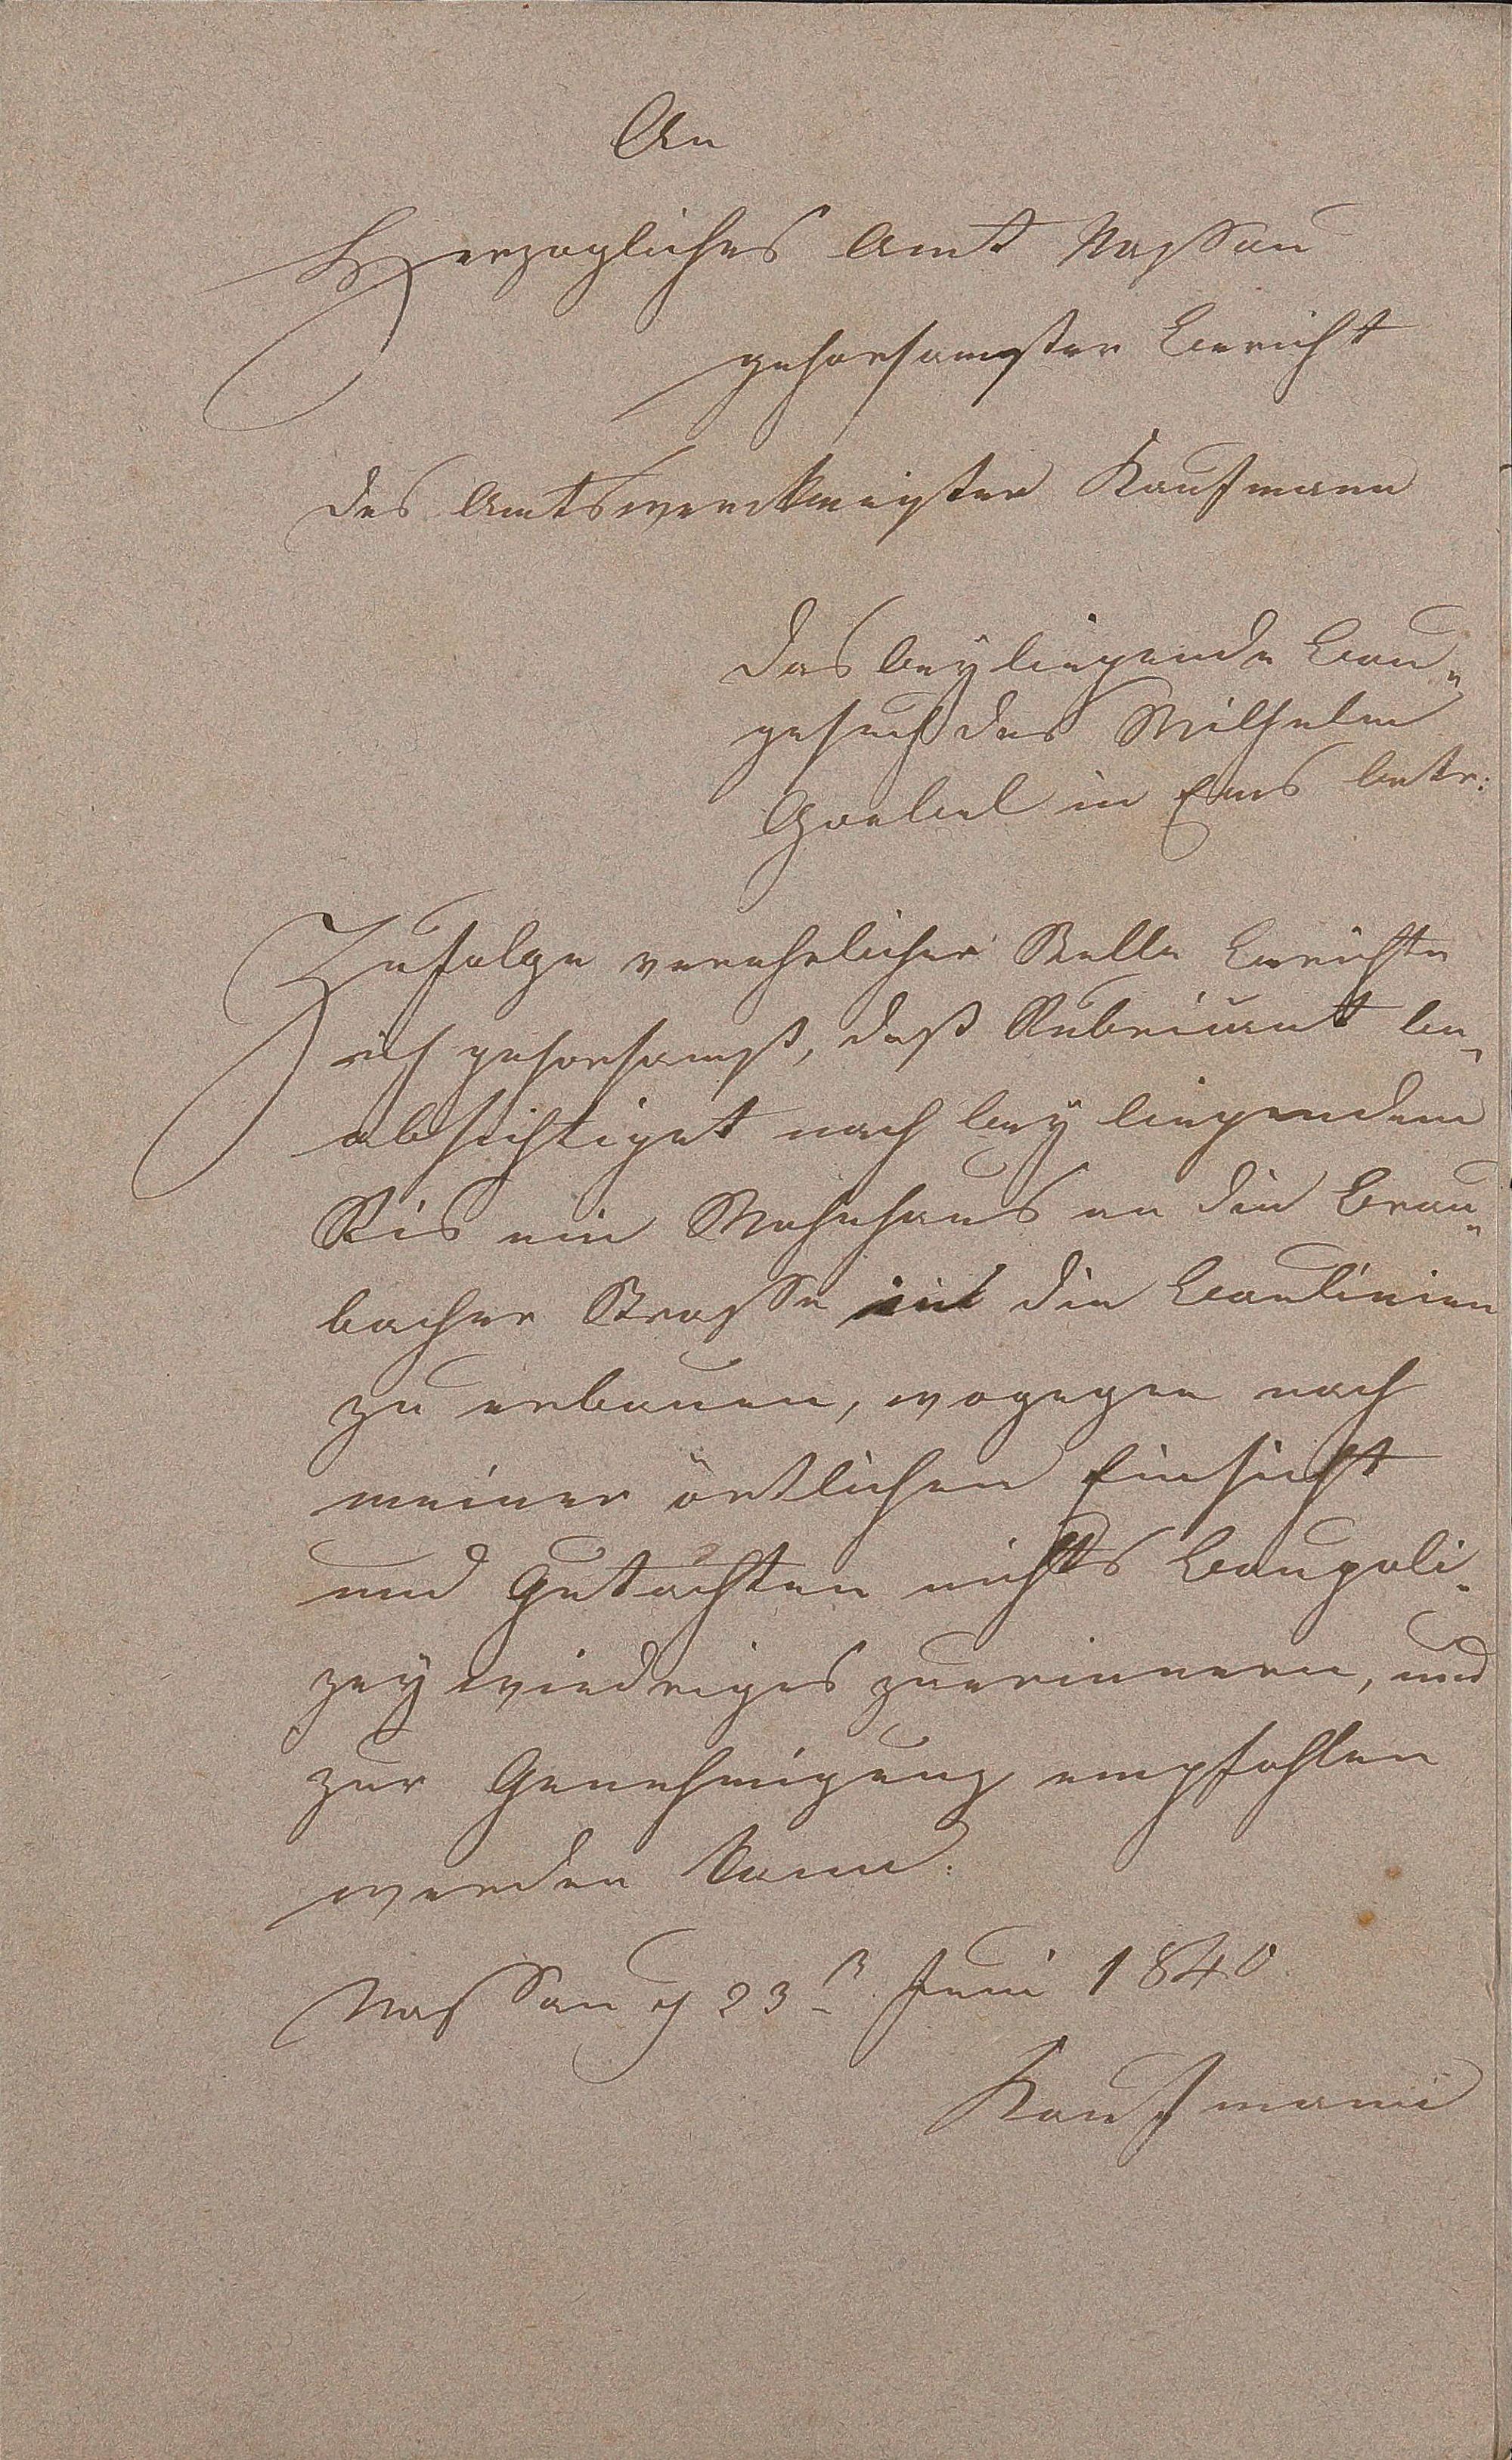 An
Herzogliches Amt Nassau
gehorsamster Bericht
des Amtswerckmeister Kaufmann
das beyliegende Bau„
gesuch des Wilhelm
Goebel in Ems betr:
Zufolge verehrlicher Stelle berichte
ich gehorsamst, daß Rubricant be„
absichtiget nach bey liegendem
Ris ein Wohnhaus an die Brau„
bacher Strasse in die Baulinien
zu erbauen, wogegen nach
meiner örtlichen Einsicht
und Gutachten nichts Baupoli„
zey wiedriges zuerinnern, und
zur Genehmigung empfohlen
werden kann.
Nassau d 23n Juni 1840
Kaufmann